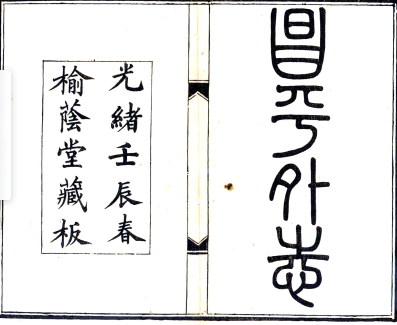 昌平外志
光緒壬辰春
榆蔭堂藏板